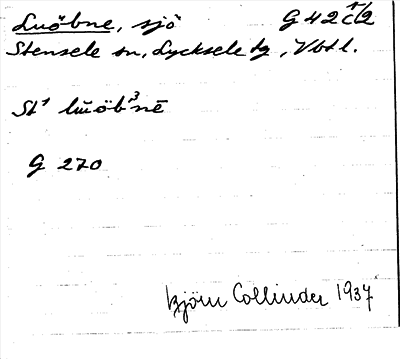 Luŏbne, sjö G 42 c 1/2
Stensele sn, Lycksele tg, Vbtl.
St¹ lŭöb³nē
G 270
Björn Collinder 1937